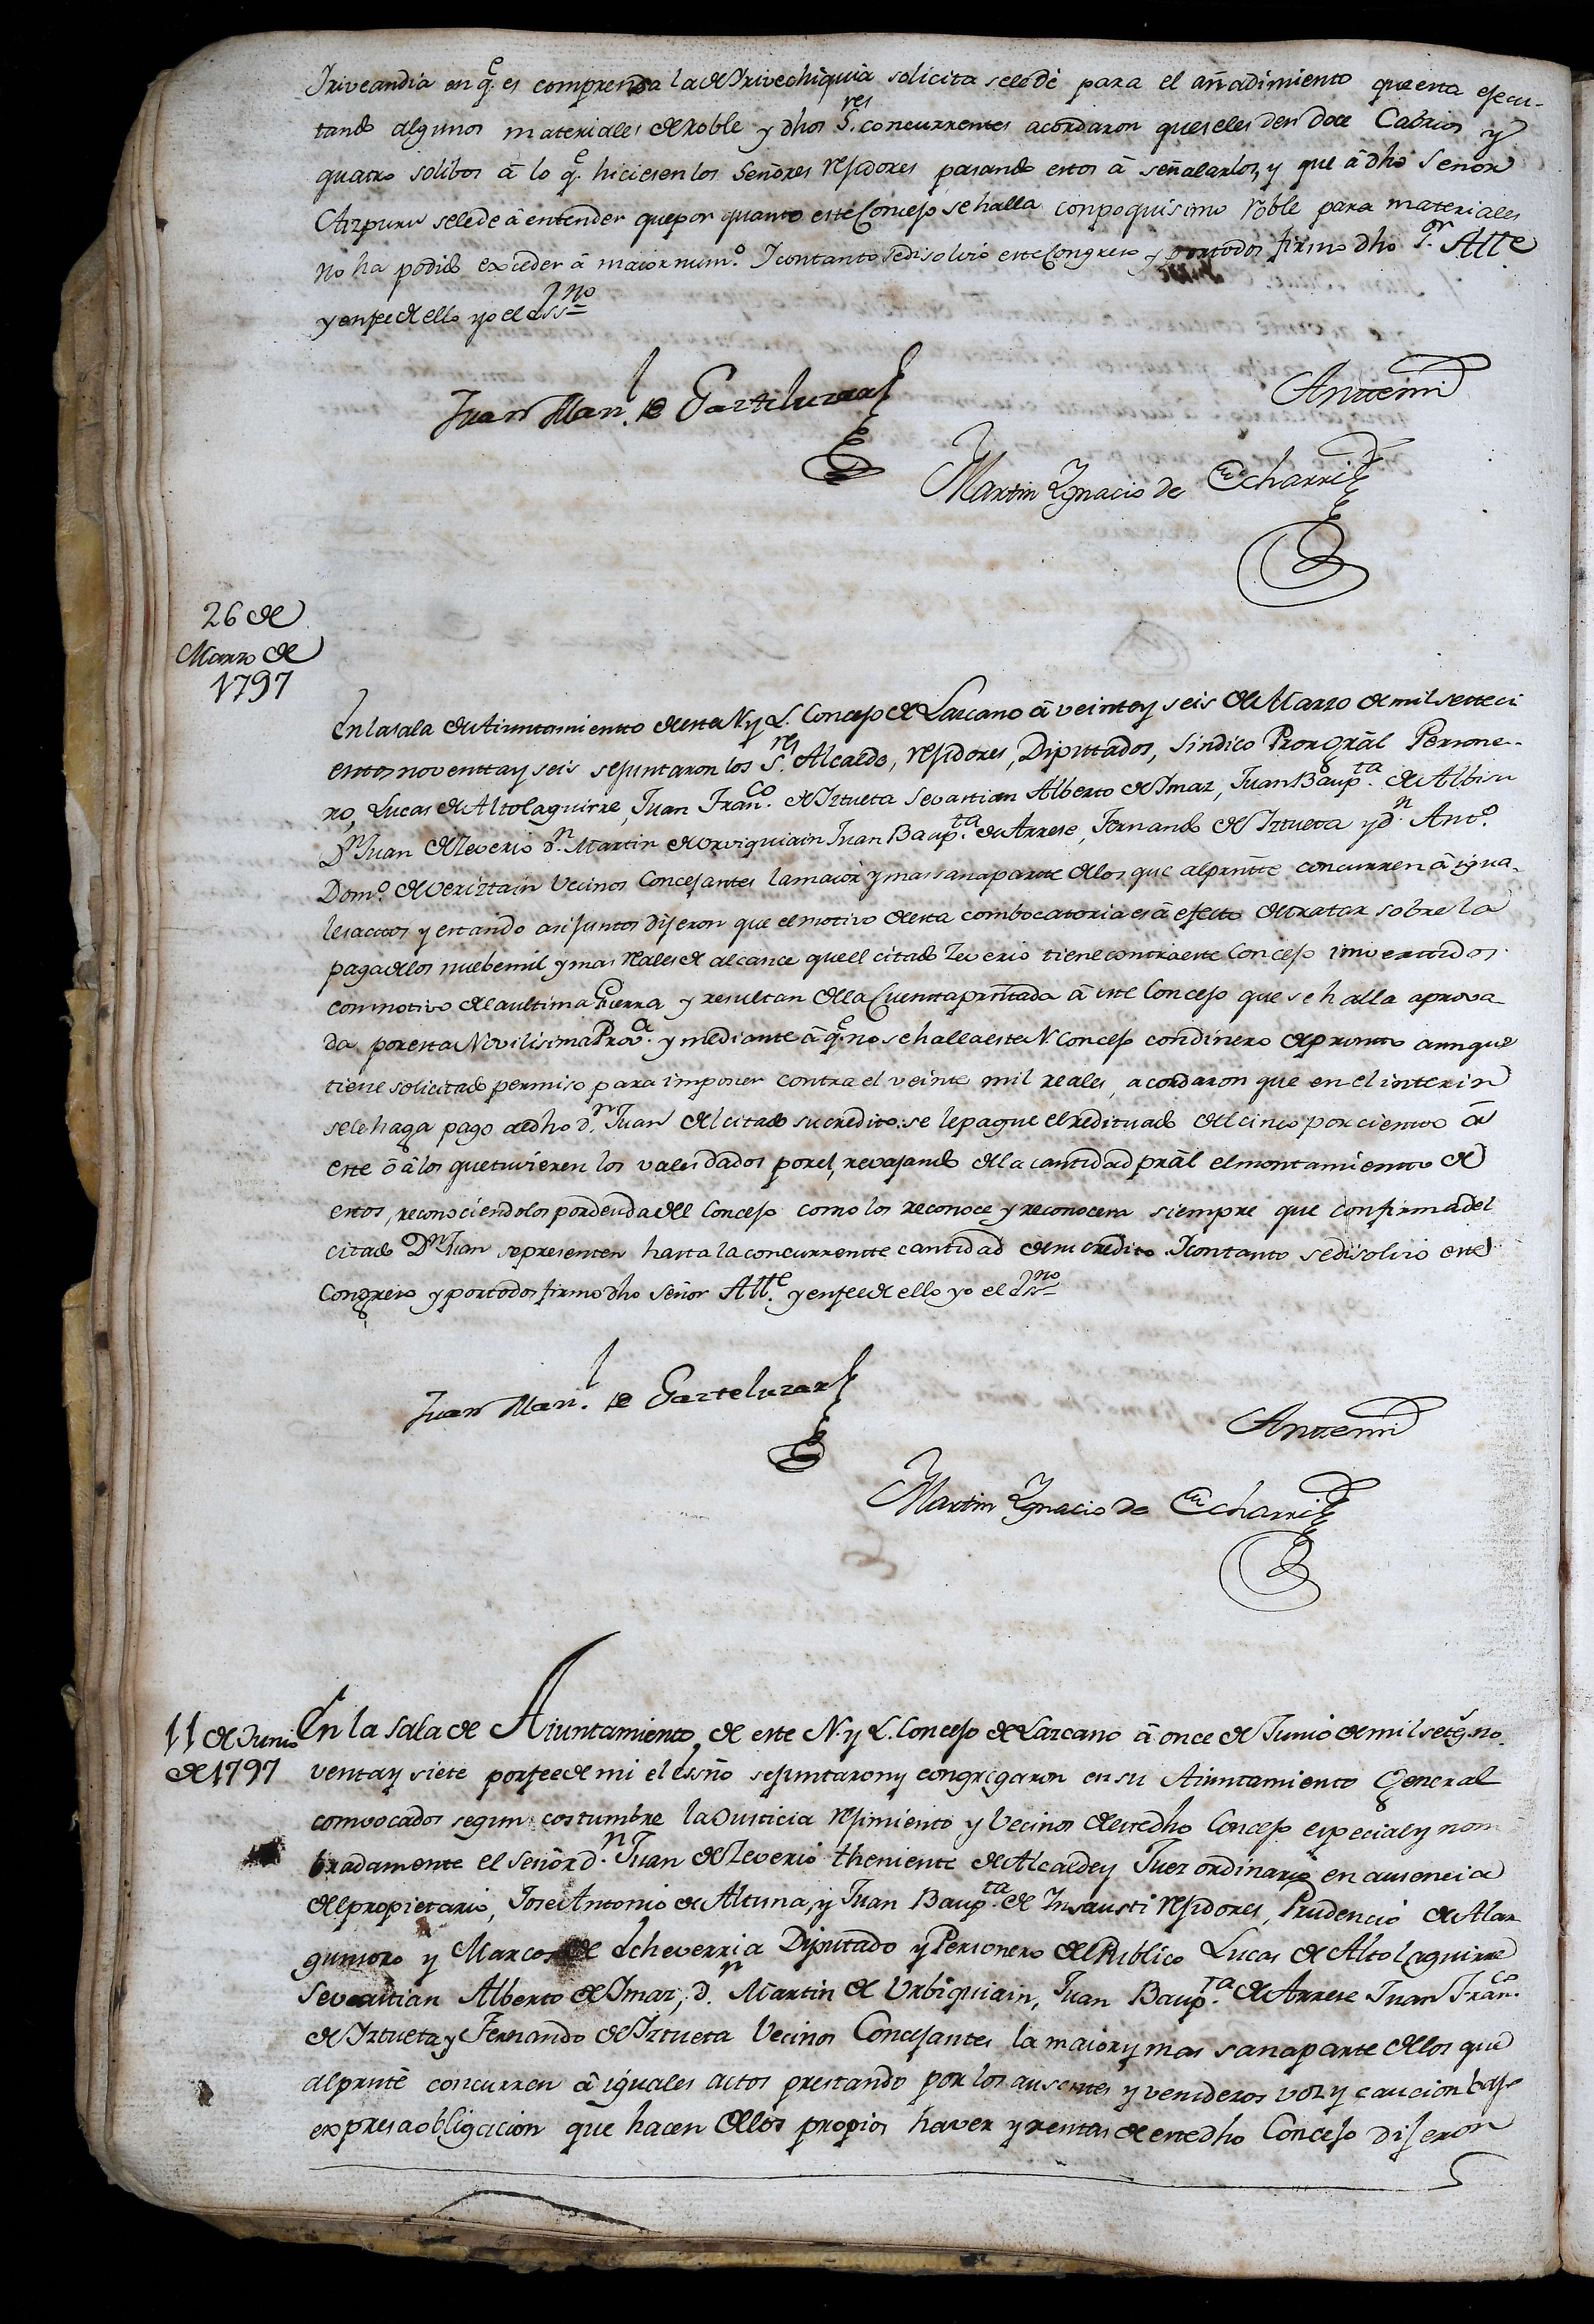 Iriveandia en q.e es comprensa la de Yrivechiquia solicita se le dè para el añadimiento que esta ejecu-
tando algunos materiales de roble y dhos S.res concurrentes acordaron que se les den doce Cabrios y
quatro solibos â lo q.e hiciesen los Señores rejidores pasando estos â señalarlos, y que â dho Señor
Aizpuru se le de â entender que por quanto este Concejo se halla con poquisimo roble para materiales
no ha podido exceder â maior num.o Y con tanto se disolvio este Congreso y por todos firmo dho S.or Alle
y en fee de ello yo el Ess.no
Juan Man.l de Gaztelu
Antemi
Martin Ygnacio de Echarri
26 de
Marzo de
1797
En la sala de Aiuntamiento de este N. y L. Concejo de Lazcano â veinte y seis de Marzo de mil setteci
entos noventta y seis se juntaron los S.res Alcalde, rejidores, Diputtados, Sindico Pror grâl Persone-
ro, Lucas de Altolaguirre, Juan Fran.co de Yztueta Sevastian Alberto de Ymaz, Juan Baup.ta de Albisu
D.n Juan de Zeverio d.n Martin de Orviquiain Juan Baup.ta de Arrese, Fernando de Yztueta y d.n Ant.o
Dom.o de Veriztain Vecinos Concejantes la maior y mas sana parte de los que al prntte concurren â igua-
les acttos y estando asi juntos dijeron que el motivo de esta combocatoria es â efecto de tratar sobre la
paga de los nuebe mil y mas reales de alcance que el citado Zeverio tiene contra este Concejo imvertidos
con motivo de la ultima Guerra y resultan de la Cuentta prntada â este Concejo que se halla aprova
da por esta Novilisima Prov.a y mediante â q.e no se halla este N. Concejo con dinero de pronto aunque
tiene solicitado permiso para imponer contra el veinte mil reales, acordaron que en el interin
se le haga pago a dho d.n Juan del citado su credito: se le pague el redituado del cinco por ciento â
este ô â los que tuvieren los vales dados por el, revajando de la cantidad prâl el montamiento de
estos, reconociendolos por deuda del Concejo como los reconoce y reconocera siempre que con firma del
citado D.n Juan se presenten hasta la concurrentte cantidad de su credito. Y con tanto se disolvio este
Congreso y por todos firmo dho Señor All.e y en fee de ello yo el Ess.no
Juan Man.l de Gaztelu
Antemi
Martin Ygnacio de Echarri
11 de Junio
de 1797
En la Sala de Aiuntamiento de este N. y L. Concejo de Lazcano â once de Junio de mil seteẑ. no-
venta y siete por fee de mi el essno se juntaron y congregaron en su Aiuntamiento General
convocados segun costumbre la Justicia rejimiento y Vecinos de este dho Concejo especial y nom
bradamente el Señor d.n Juan de Zeverio theniente de Alcalde y Juez ordinario en ausencia
del propietario, Jose Antonio de Altuna, y Juan Baup.ta de Ynsausti rejidores, Prudencio de Alar
gunsoro y Marcos de Echeverria Diputado y Personero del Publico Lucas de Altolaguirre
Sevastian Alberto de Ymaz, d.n Martin de Urbiquiain, Juan Baup.ta de Arrese Juan Fran.co
de Yztueta y Fernando de Yztueta Vecinos Concejantes la maior y mas sana parte de los que
al prnte concurren â iguales actos prestando por los ausentes y venideros voz y caucion bajo
expresa obligacion que hacen de los propios haver y rentas de este dho Concejo dijeron